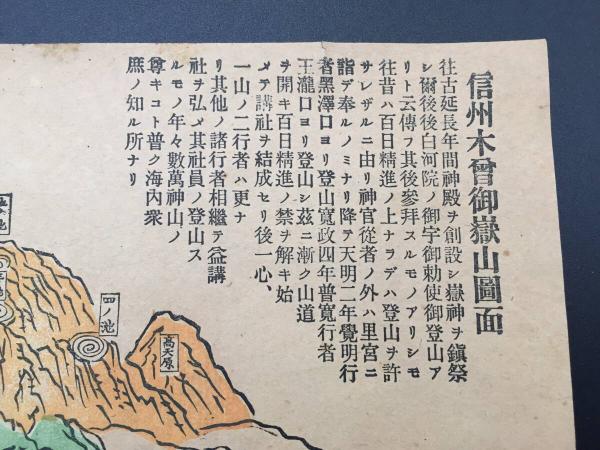 信州木曾御嶽山圖面
往古延長年間神殿ヲ創設シ嶽神ヲ鎭祭
シ爾後後白河院ノ御宇御勅使御登山ア
リト云傳フ其後參拜スルモノアリシモ
往昔ハ百日精進ノ上ナラデハ登山ヲ許
サレザルニ由リ神官從者ノ外ハ里宮ニ
詣デ奉ルノミナリ降テ天明二年覺明行
者黑澤口ヨリ登山寬政四年普寬行者
王瀧口ヨリ登山シ茲ニ漸ク山道
ヲ開キ百日精進ノ禁ヲ解キ始
メテ講社ヲ結成セリ後一心、
一山ノ二行者ハ更ナ
リ其他ノ諸行者相繼テ益講
社ヲ弘メ其社員ノ登山ス
ルモノ年々數萬神山ノ
尊キコト普ク海內衆
庶ノ知ル所ナリ
高天原
四ノ池